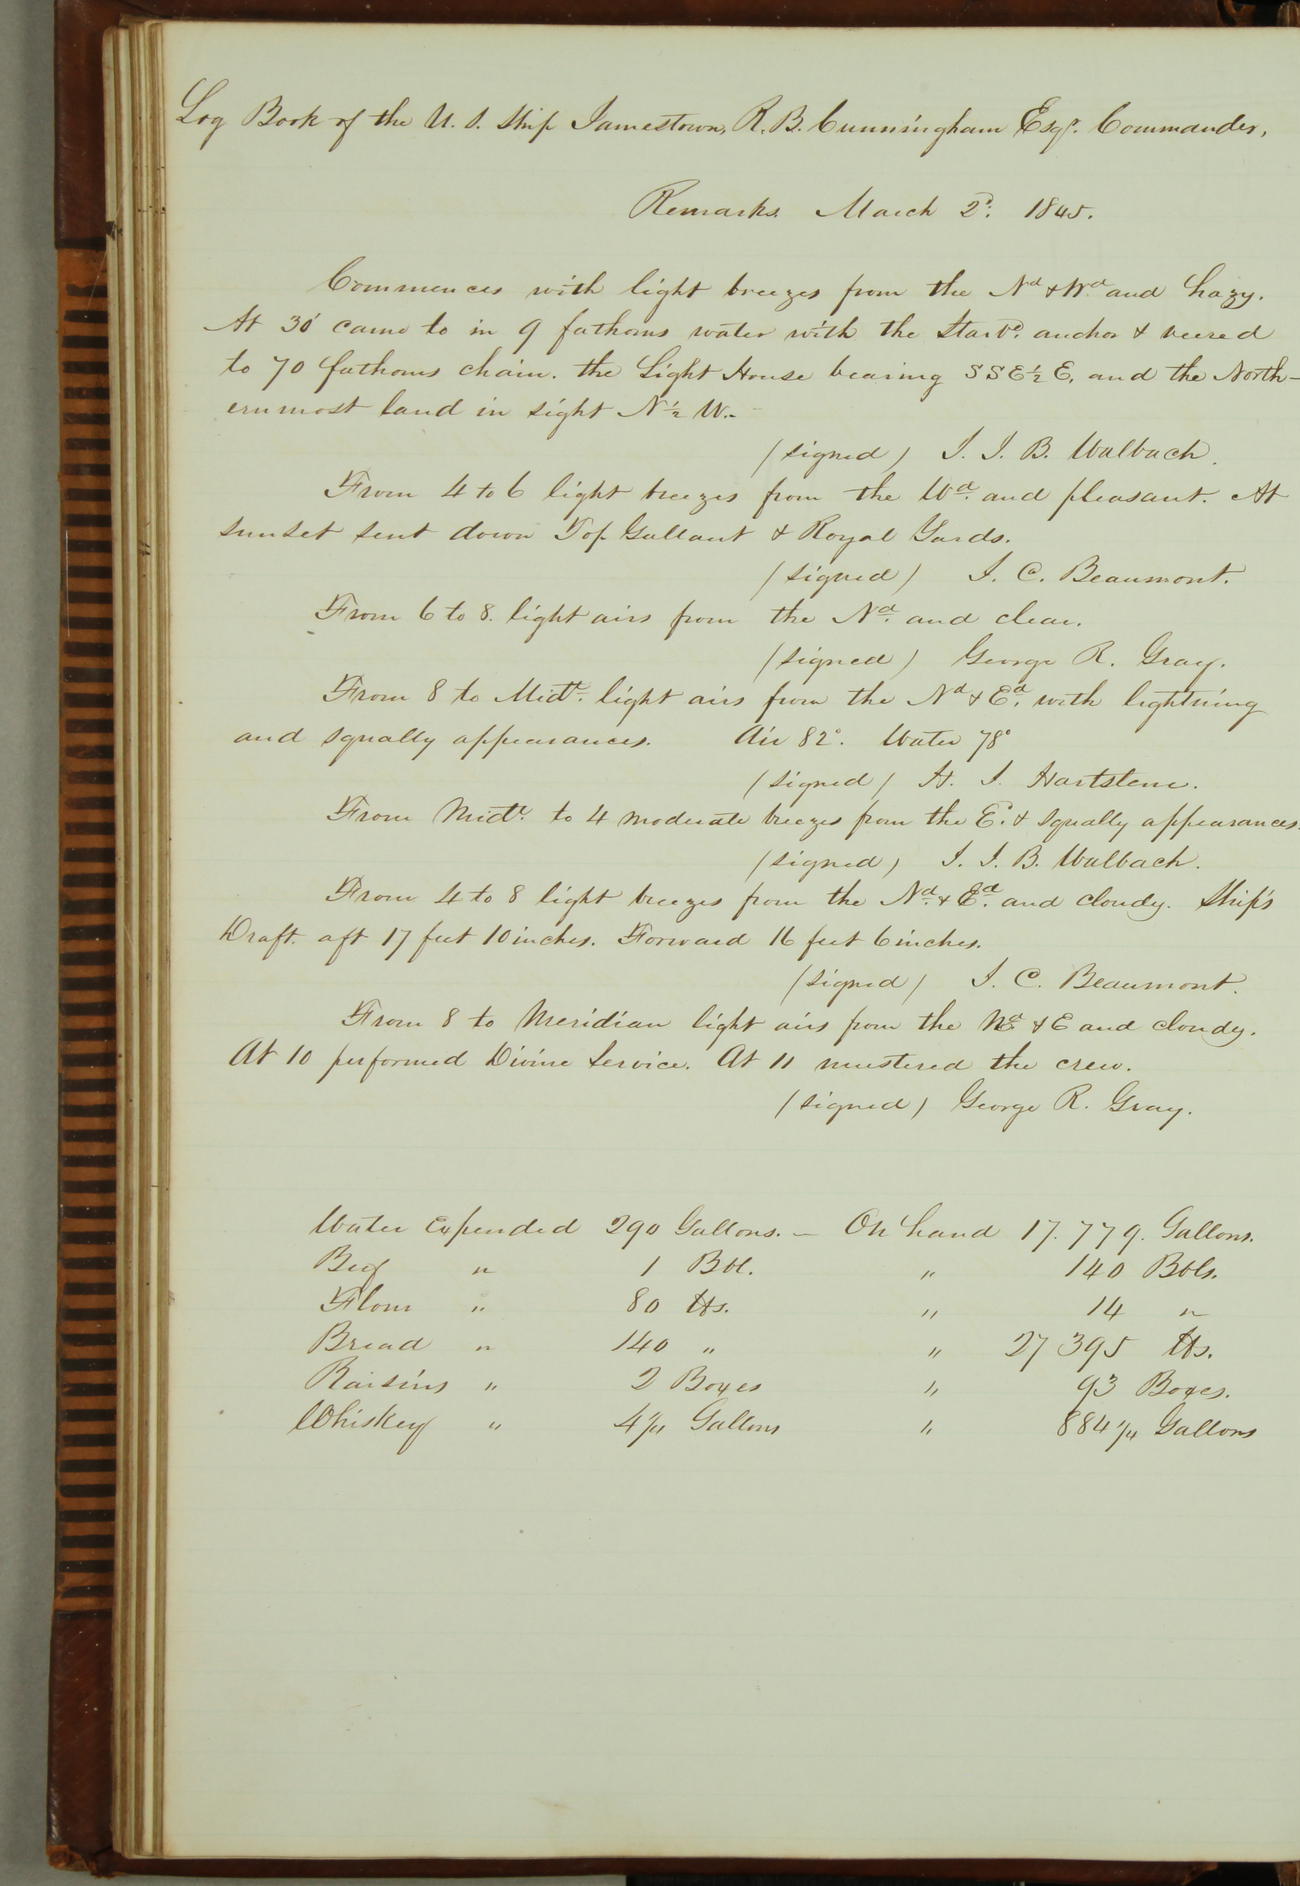 Log Book of the U. S. Ship Jamestown, R. B. Cunningham Esqr. Commander,
Remarks March 2d. 1845.
Commences with light breezes from the Nd & Wd and hazy.
At 30' came to in 9 fathoms water with the Starbd. anchor & veered
to 70 fathoms chain. the Light House bearing SSE½E, and the North-
ernmost land in sight N½W.-
(signed) J. J. B. Walbach.
From 4 to 6 light breezes from the Wd. and pleasant. At
sunset sent down Top Gallant & Royal Yards.
(signed) J. C. Beaumont.
From 6 to 8. light airs from the Nd. and clear.
(signed) George R. Gray.
From 8 to Midt. light airs from the Nd & Ed. with lightning
and squally appearances. Air 82°. Water 78°
(signed) H. J. Hartstene.
From Midt. to 4 moderate breezes from the E. & squally appearances.
(signed) J. J. B. Walbach.
From 4 to 8 light breezes from the Nd. & Ed. and cloudy. Ship's
Draft. aft 17 feet 10 inches. Forward 16 feet 6 inches.
(signed) J. C. Beaumont.
From 8 to Meridian light airs from the Nd & E and cloudy.
At 10 performed Divine Service. At 11 mustered the crew.
(signed) George R. Gray.
Water Expended 290 Gallons. – On hand 17.779. Gallons.
Beef " 1 Bbl. " 140 Bbls.
Flour " 80 lbs. " 14 "
Bread " 140 " " 27 395 lbs.
Raisins " 2 Boxes " 93 Boxes.
Whiskey " 4¼ Gallons " 884¼ Gallons